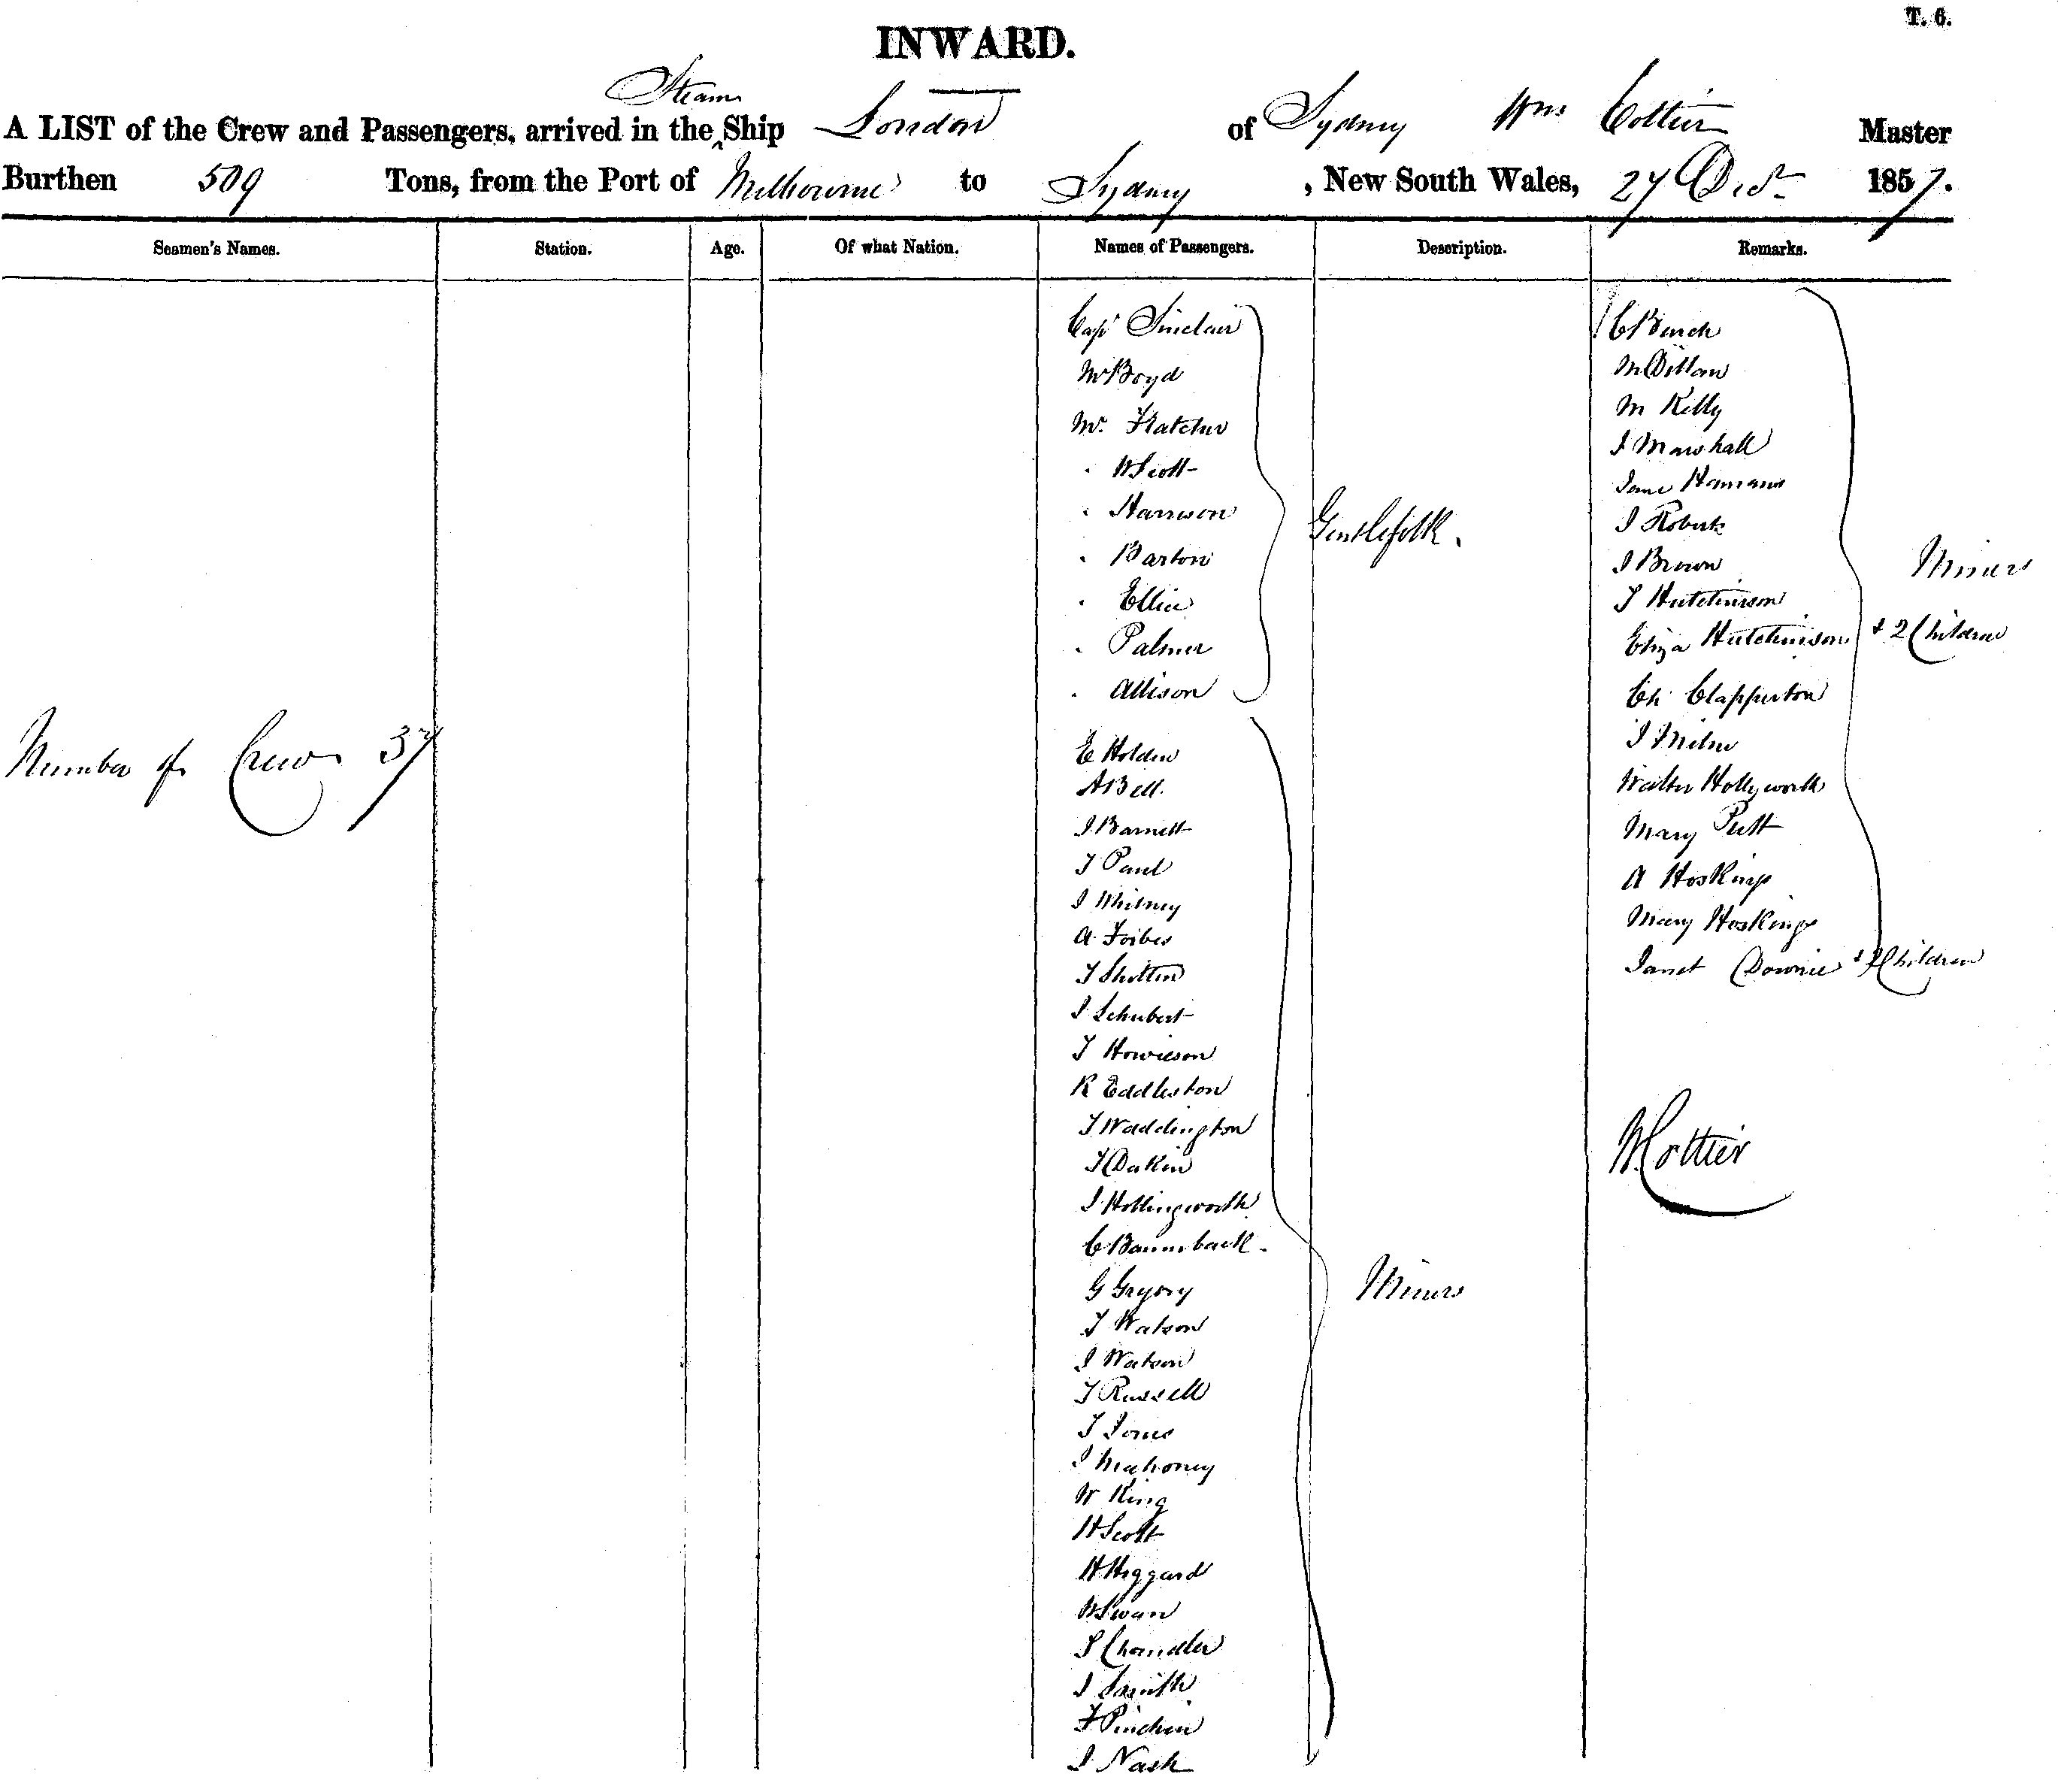 T. 6.
INWARD.
Steam
A LIST of the Crew and Passengers, arrived in the Ship London of Sydney Wm Cottier Master
Burthen 509 Tons, from the Port of Melbourne to Sydney, New South Wales, 27 Decr 1857.
Seamen's Names. Station. Age. Of what Nation. Names of Passengers. Description. Remarks.
Number of Crew 37
Capt Sinclair
Mr Boyd
Mr. Fletcher
" W Scott
" Harrison
" Barton
" Ellis
" Palmer
" Allison
Gentlefolk.
E Holden
A Bell.
J. Barnett
T Paul
J Whitney
A. Forbes
T Shotten
J Schubert
T Howieson
R Eddleston
T Waddington
T Dakin
J Hollingworth
C
G Gregory
T Watson
J Watson
T Russell
T Jones
J Mahoney
W King
H Scott
H Higgard
W Swan
S Chandler
J Smith
F Pinchin
J. Nash
Miners
C Burch
M Dillon
M Kelly
J Marshall
Jane
J Roberts
J Brown
T Hutchinson
Eliza Hutchinson & 2 Children
Ch Clapperton
J Milne
Walter Hollyworth
Mary Pett
A Hoskings
Mary Hoskings
Janet Downie & 2 Children
Miners
W Cottier